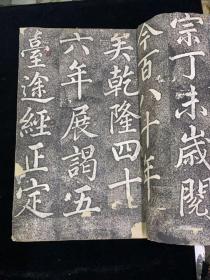 宗丁未歲閱
今百八十年
矣乾隆四十
六年展謁五
臺途經正定